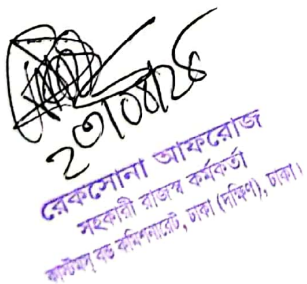 ২৩/০৪/২৪
রেকসোনা আফরোজ
সহকারী রাজস্ব কর্মকর্তা
কাস্টমস্ বন্ড কমিশনারেট, ঢাকা (দক্ষিণ), ঢাকা।